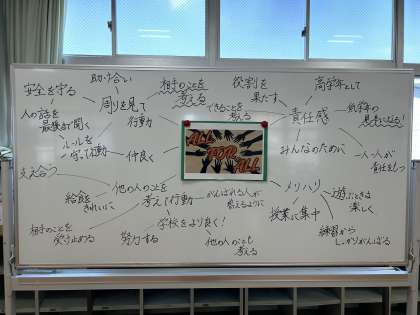 助け合い
安全を守る
周りを見て
行動
人の話を
最後まで聞く
ルールを
守って行動
仲良く
支え合う
相手のことを
考える
できることを
考える
役割を
果たす
責任感
高学年として
低学年の
見本になる!
みんなのために
一人一人が
責任をもつ
ALL
FOR
ALL
他の人のことを
考えて行動
給食
きれいに
相手のことを
受け止める
努力する
学校をより良く!
がんばれる人が
増えるように
他の人のことも
考える
メリハリ
授業に集中
遊ぶときは
楽しく
練習から
しっかりがんばる